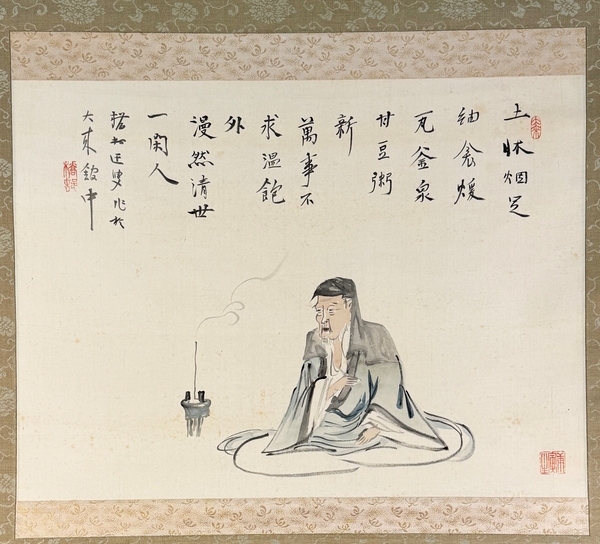 土牀烟足
紬衾煖
瓦釜泉
甘豆粥
新
萬事不
求溫飽
外
漫然清世
一閑人
迂叟作於
大東中